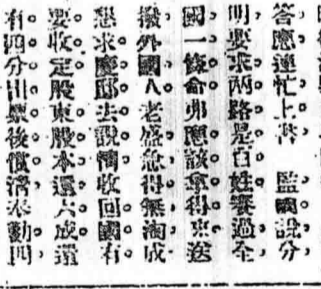 答應連忙上書　監國說分
明，要求兩路是百姓養過全
國一條命那應該拿得來送
撥外國人老盛急得無淘成
懇求慶邸去說　收回國有
要收定股東股本還六成還
有四分出票後償清不動四